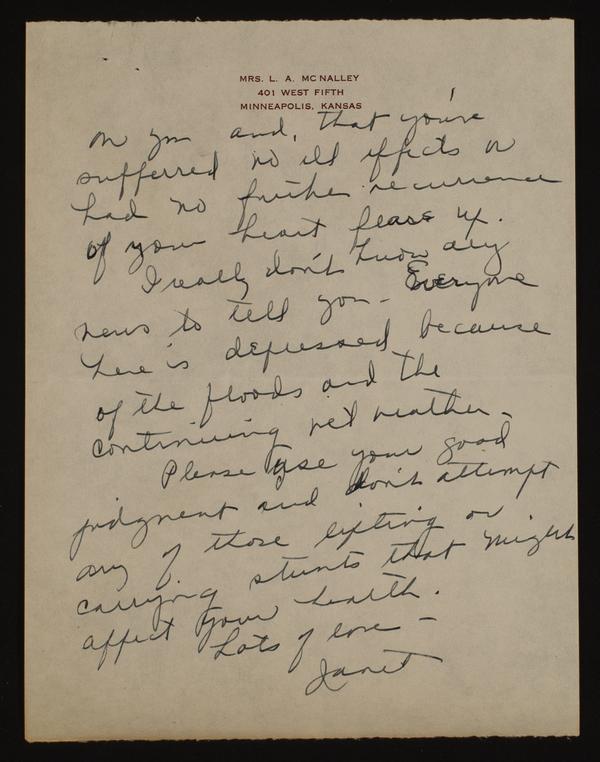 MRS. L. A. MCNALLEY
401 WEST FIFTH
MINNEAPOLIS, KANSAS
on you and, that you're
sufferred no ill effects or
had no further recurrence
of your heart flare up.
I really don't know any
news to tell you - Everyone
here is depressed because
of the floods and the
continuing wet weather -
Please use your good
judgment and don't attempt
any of those lifting or
carrying stunts that might
affect your health.
Lots of love -
Janet